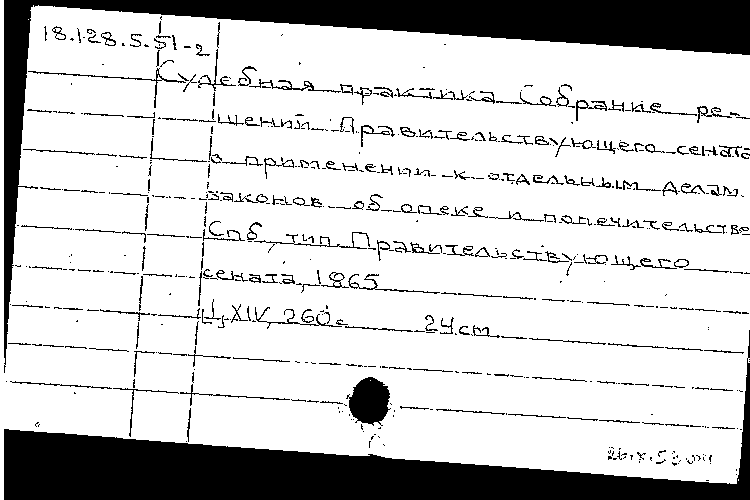 18.128.5.51-2
Судебная практика Собрание ре-
шений Правительствующего сената
о применении к отдельным делам
законов об опеке и попечительстве
Спб, тип. Правительствующего
сената, 1865
XIV, 260с 24 cm